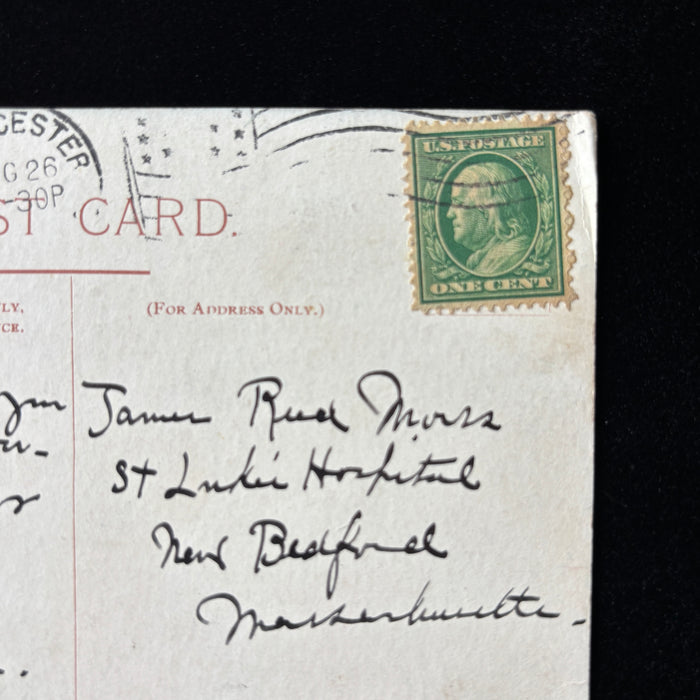 CESTER
G 26
-30P
U.S. POSTAGE
ONE CENT
ST CARD.
LY,
CE.
(FOR ADDRESS ONLY.)
James Reed Morss
St Luke's Hospital
New Bedford
Massachusetts.